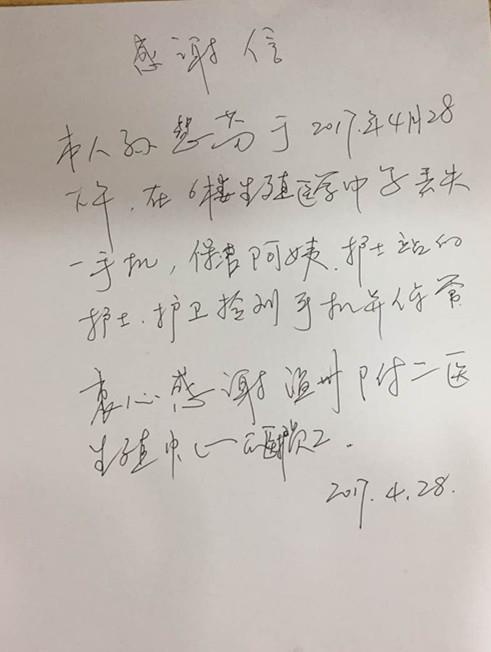 感谢信
本人孙慧芬于2017.年4月28
下午.在6楼生殖医学中心丢失
一手机,保洁阿姨.护士站的
护士.护卫捡到手机并保管
衷心感谢温州附二医
生殖中心医护员工.
2017.4.28.